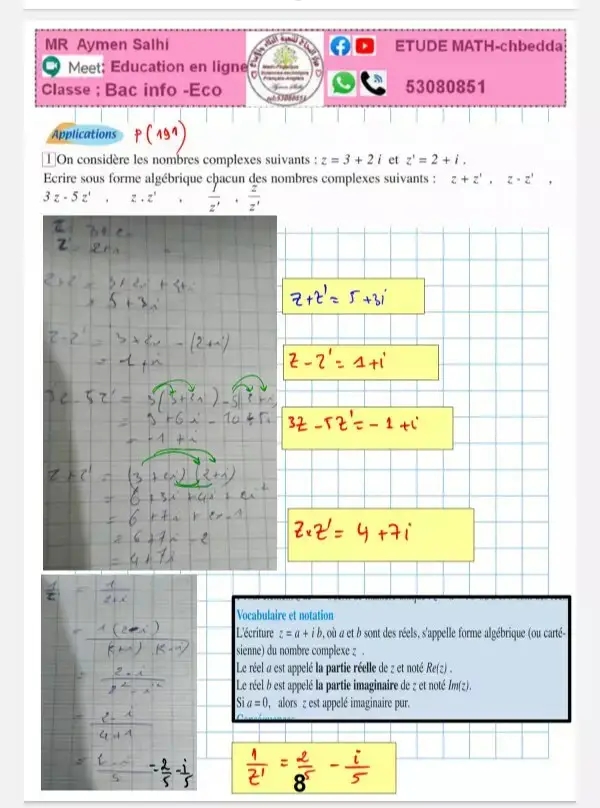 MR Aymen Salhi
Meet: Education en ligne
Classe : Bac info -Eco
ETUDE MATH-chbedda
53080851
Applications P(191)
1 On considère les nombres complexes suivants : z = 3 + 2 i et z' = 2 + i .
Ecrire sous forme algébrique chacun des nombres complexes suivants : z + z' , z - z' ,
3 z - 5 z' , z . z' , 1/z' , z/z'
z+z' = 5+3i
z-z' = 1+i
= 1+i
3z-5z' = -1+i
= -1+i
z×z' = (3+2i)(2+i)
= 6+3i+4i+2i²
= 6+7i-2
= 4+7i
z×z' = 4+7i
= 1/2+i
= 2-i/4+1
= 2/5 - i/5
Vocabulaire et notation
L'écriture z = a + i b, où a et b sont des réels, s'appelle forme algébrique (ou carté-
sienne) du nombre complexe z .
Le réel a est appelé la partie réelle de z et noté Re(z) .
Le réel b est appelé la partie imaginaire de z et noté Im(z).
Si a = 0, alors z est appelé imaginaire pur.
1/z' = 2/5 - i/5
8